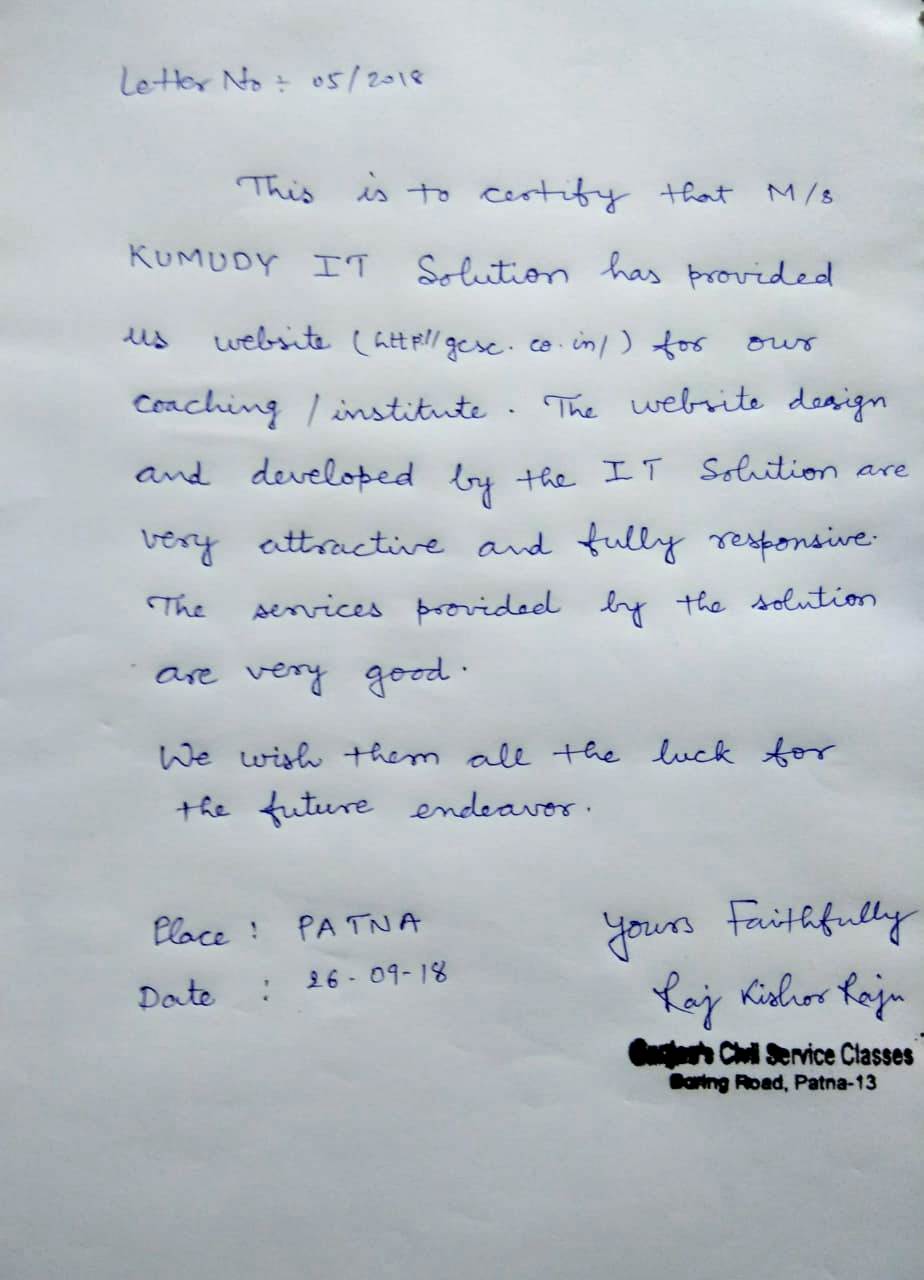 Letter No : 05/2018
This is to certify that M/s
KUMUDY IT Solution has provided
us website (http://gcsc.co.in/) for our
coaching / institute. The website design
and developed by the IT Solution are
very attractive and fully responsive.
The services provided by the solution
are very good.
We wish them all the luck for
the future endeavor.
Place : PATNA
Date : 26-09-18
Yours Faithfully
Raj Kishor Raju
Civil Service Classes
Boring Road, Patna-13